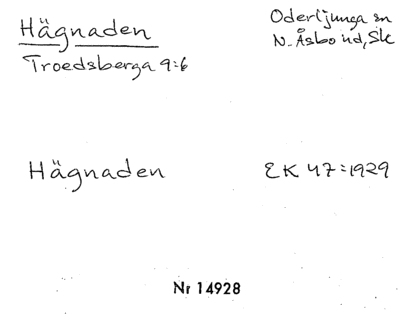 Hägnaden
Oderljunga sn
N. Åsbo hd, Sk
Troedsberga 9:6
Hägnaden
EK 47:1929
Nr 14928